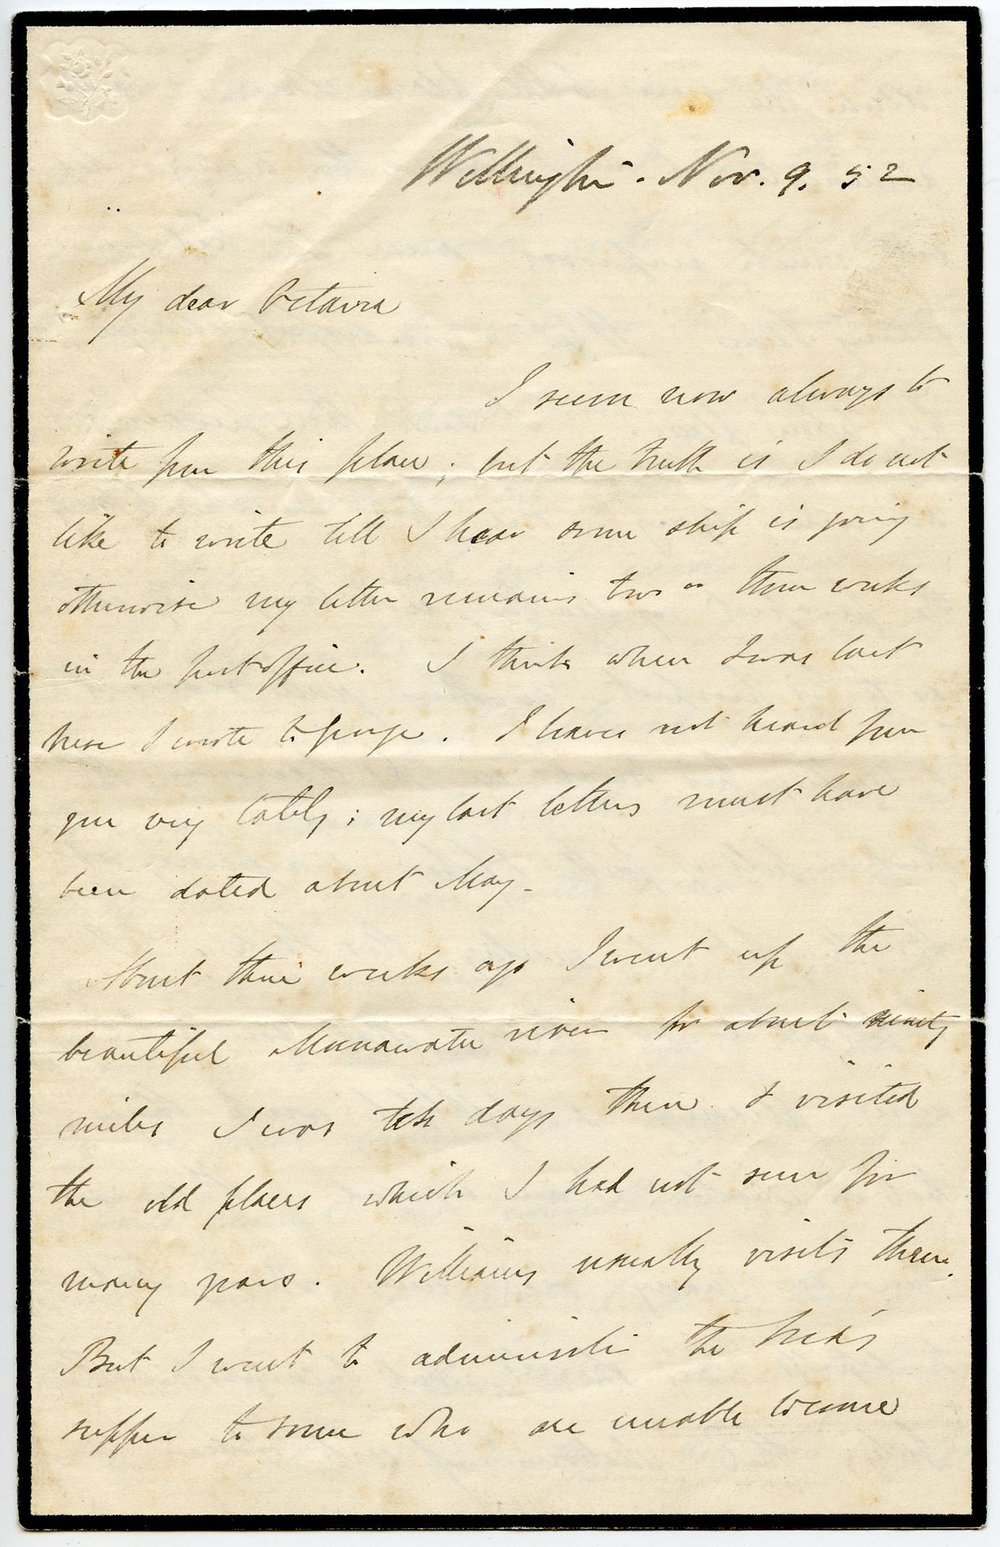 Wellington. Nov. 9. 52
My dear Octavia
I seem now always to
write from this place; but the truth is I do not
like to write till I hear some ship is going
otherwise my letter remains two or three weeks
in the post office. I think when I was last
here I wrote to George. I have not heard from
you very lately; my last letters must have
been dated about May.
About three weeks ago I went up the
beautiful Manawatu river for about ninety
miles I was ten days there & visited
the old places which I had not seen for
many years. Williams usually visits them.
But I went to administer the Lord's
supper to some who are unable to come